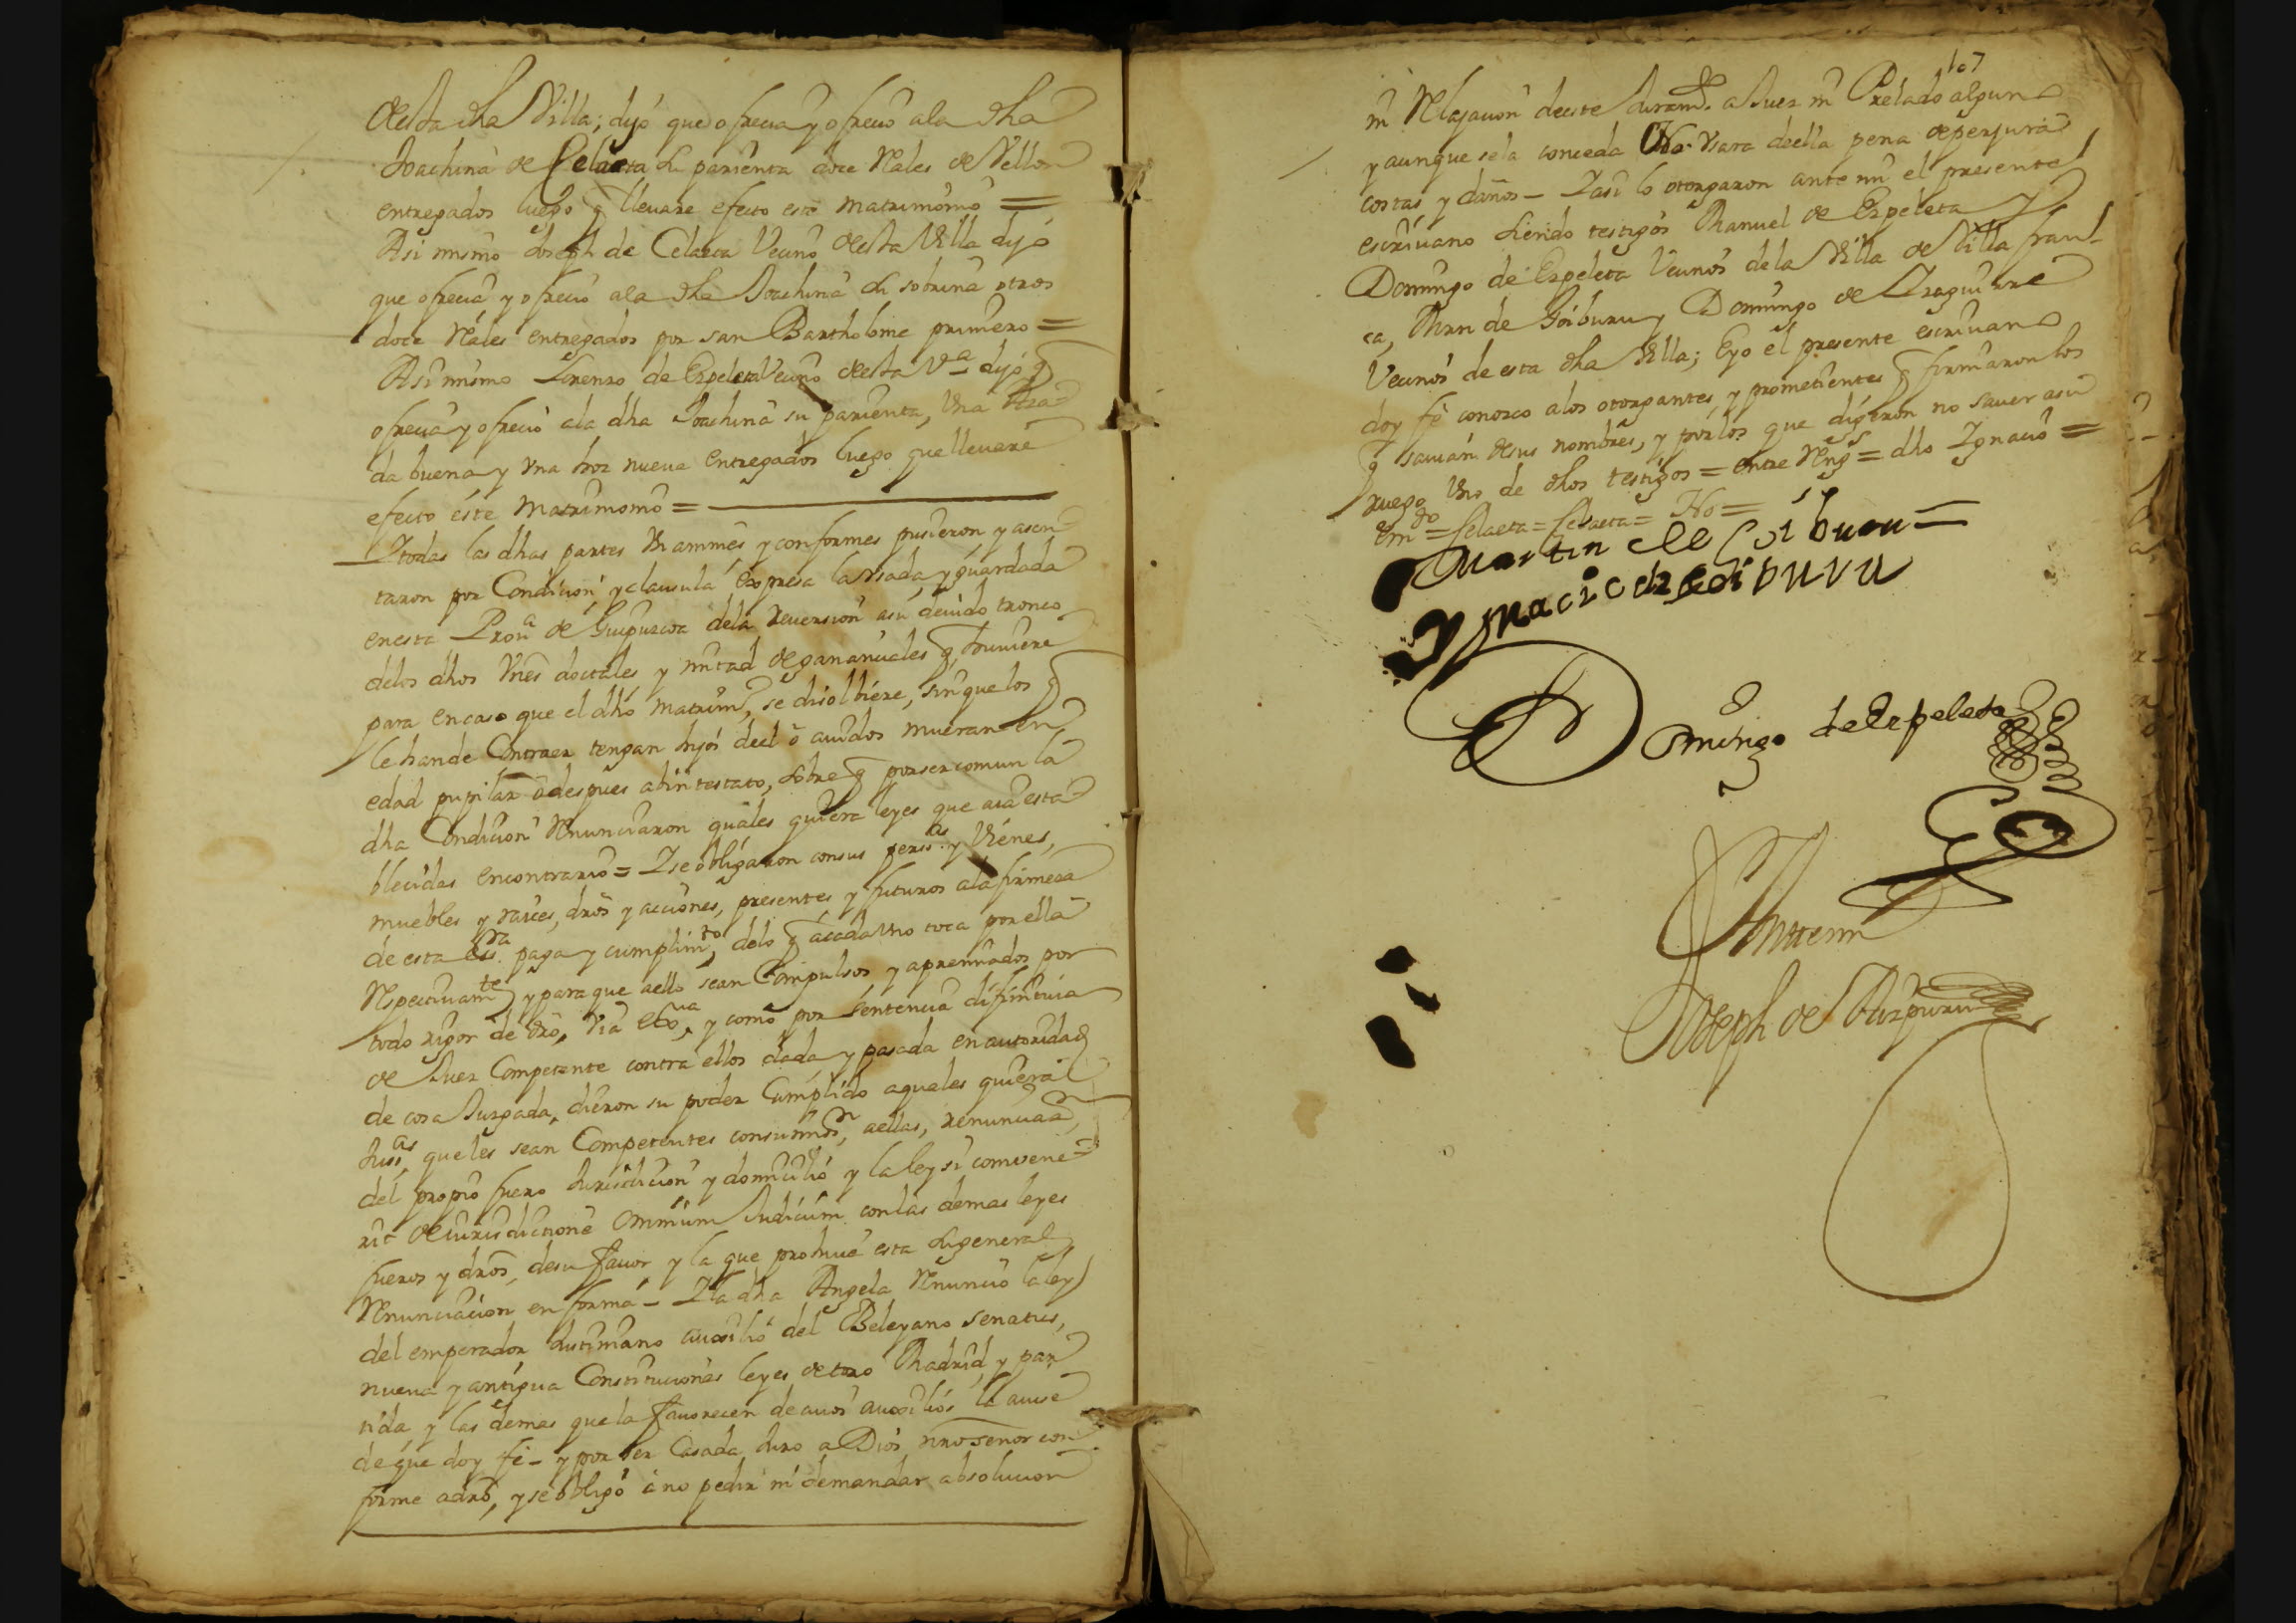 desta dha Villa; dijo que ofrecia y ofrecio ala dha
Joachina de Celaeta su parienta doce Rales de Vellon
entregados luego q llevare efecto este matrimonio =
Asi mismo Joseph de Celaeta Vecino desta Villa dijo
que ofrecia y ofrecio ala dha Joachina su sobrina otros
doce Rales entregados por san Bartholome primero =
Asi mismo Lorenzo de Ezpeleta Vecino desta Va dijo q
ofrecia y ofrecio ala dha Joachina su parienta, Una Aza-
da buena y Una hoz nueva entregados luego que llevare
efecto este Matrimonio =
Y todas las dhas partes Unanimes y conformes pusieron y asen-
taron por Condicion y clausula expresa la Usada y guardada
en esta Prova de Guipuzcoa dela reversion asu devido tronco
delos dhos Vnes doctales y mitad de gananciales q huviere
para en caso que el dho matrimo, se disolbiere, sin que los q
le han de Contraer tengan hijos deel ô avidos mueran en
edad pupilar ô despues abintestato, sobre q por ser comun la
dha Condicion Renunciaron quales quiera leyes que aia esta-
blecidas encontrario = Y se obligaron con sus persas y Vienes,
muebles y raices, dros y acciones, presentes y futuros ala firmeza
de esta essra paga y cumplimto, delo q acada Uno toca por ella
Respectivamte y para que aello sean Compulsos y apremiados por
todo rigor de dro, Via exva, y como por sentencia difinitiva
de Juez Competente contra ellos dada y pasada en autoridad
de cosa Juzgada, dieron su poder Cumplido aquales quiera
Jusas que les sean Competentes consumon, aellas, renunciaon
del propio fuero Jurisdicion y domicilio y la ley si convene-
rit de iurisdictione Omnium Judicum con las demas leyes
fueros y dros, desu favor y la que prohive esta su general
Renunciacion en forma - Y la dha Angela Renuncio la ley
del emperador Justiniano auxilio del Beleyano senatus,
nueva y antigua Constituciones leyes de toro Madrid, y par-
tida, y las demas que la favorecen de cuios auxilios la avise
de que doy fe - y por ser Casada Juro a Dios nro señor con-
forme adro, y se obligó á no pedir ni demandar absolucion
107
ni Relajacion deeste Juramto a Juez ni Prelado alguno
y aunque sela conceda No Usara deella pena de perjura
costas y daños - Y asi lo otorgaron ante mi el presente
escrivano siendo testigos Manuel de Ezpeleta y
Domingo de Ezpeleta Vecinos dela Villa de Villafran-
ca, Mrn de Goiburu y Domingo de Yzaguirre
Vecinos de esta dha Villa; E yo el presente escrivano
doy fe conozco alos otorgantes, y prometientes q firmaron los
q savian desus nombres, y por los que digeron no saver asu
ruego Uno de dhos testigos = entre Rengs = dho Ygnacio =
emdo = Celaeta = Celaeta = No =
Martin de Goiburu =
Ygnacio de Goiburu
Domingo de Ezpeleta
Ante mi
Joseph de Aizpuru